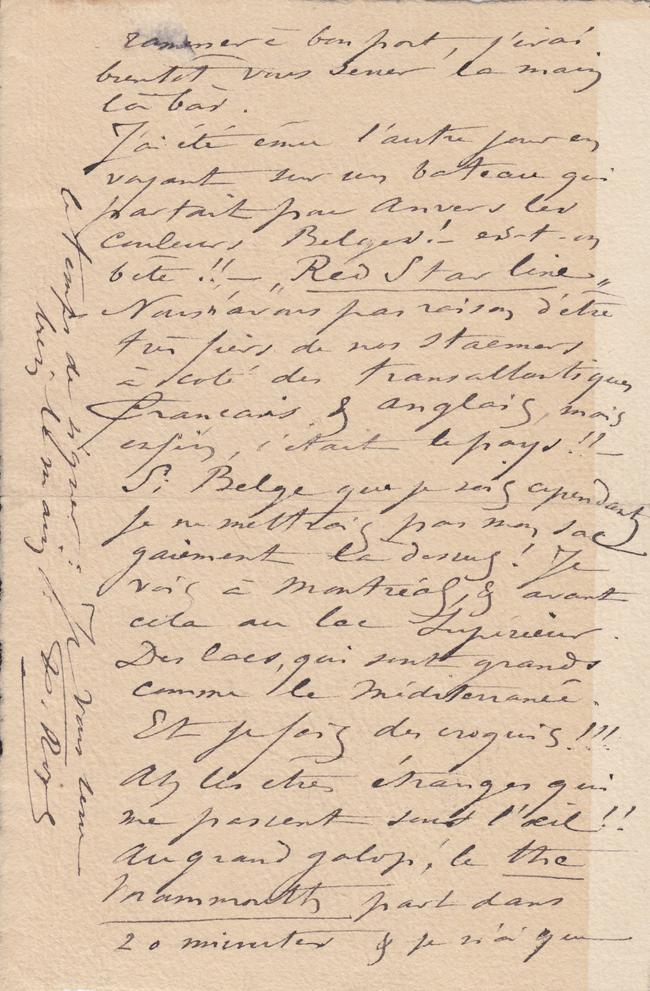 ramener à bon port, j'irai
bientôt vous serrer la main
là bàs.
J'ai été ému l'autre jour en
voyant sur un bateau qui
partait pour Anvers les
couleurs Belges! — est-on
bête!! — „Red Star line„
Nous n'avons pas raison d'être
très fiers de nos steamers
à coté des transatlantiques
Français & anglais, mais
enfin, c'était le pays!! —
Si Belge que je sois cependant
je ne mettrais pas mon sac
gaiement là dessus! Je
vais à Montréal, & avant
cela au lac Supérieur.
Des lacs, qui sont grands
comme la Méditerranée.
Et je fais des croquis!!!
Ah les êtres étranges qui
me passent sous l'œil!!
Au grand galop, le the
Mammouth part dans
20 minutes & je n'ai que
le temps de signer: Je vous serre
bien les mains.